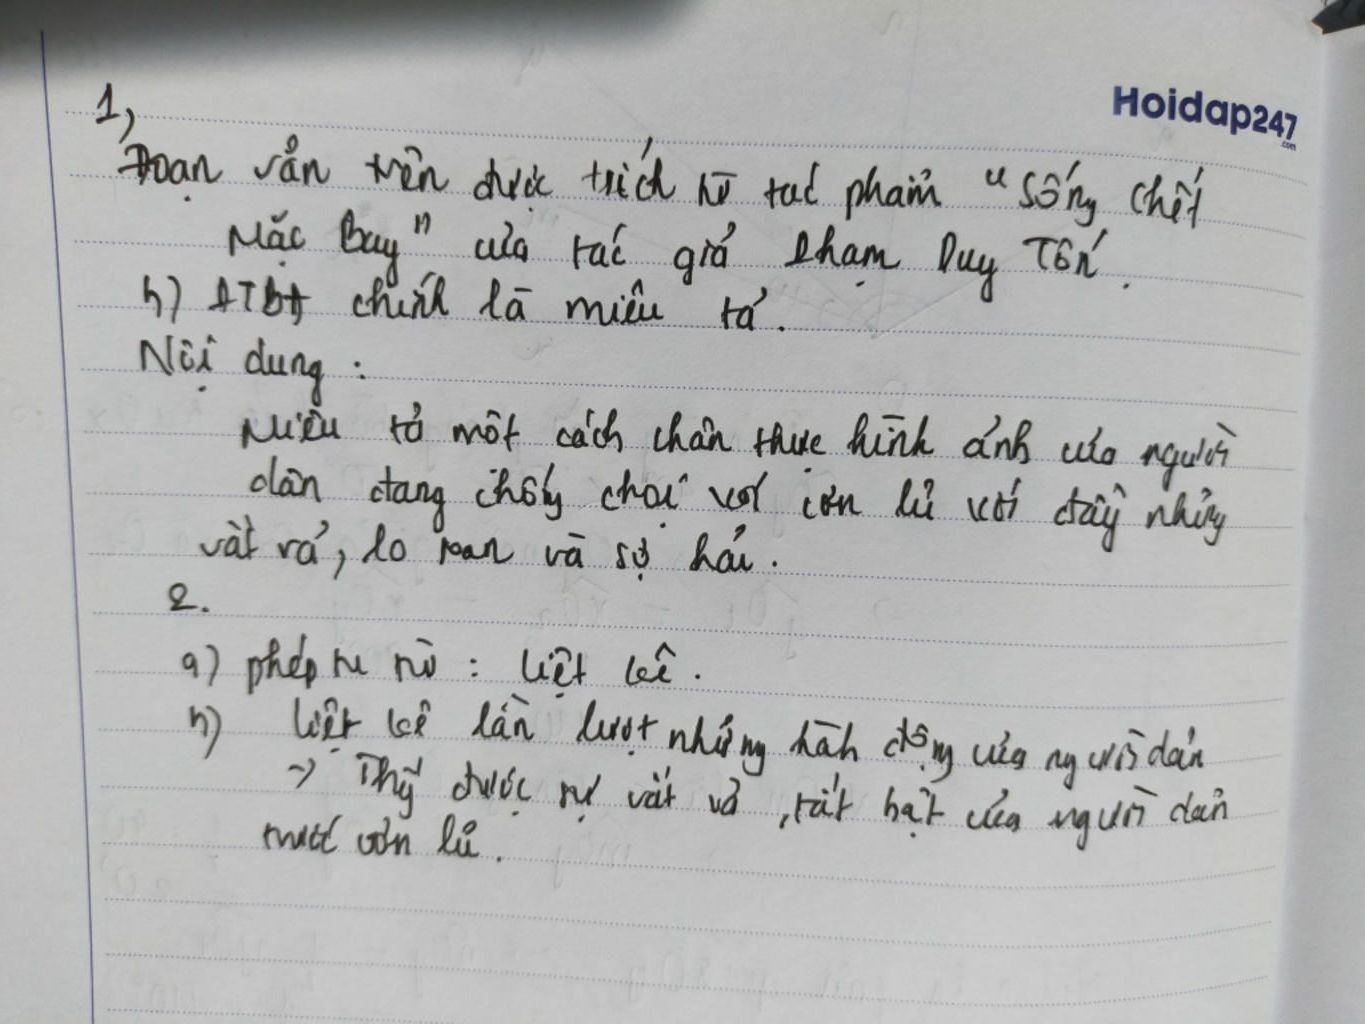 Hoidap247
.com
1,
Đoạn văn trên được trích từ tác phẩm "Sống chết
Mặc Bay" của tác giả Phạm Duy Tốn.
b) PTBĐ chính là miêu tả.
Nội dung :
Miêu tả một cách chân thực hình ảnh của người
dân đang chống chọi với cơn lũ với đầy những
vất vả, lo toan và sợ hãi.
2.
a) phép tu từ : liệt kê.
b) Liệt kê lần lượt những hành động của người dân
-> Thấy được sự vất vả, tất bật của người dân
trước cơn lũ.